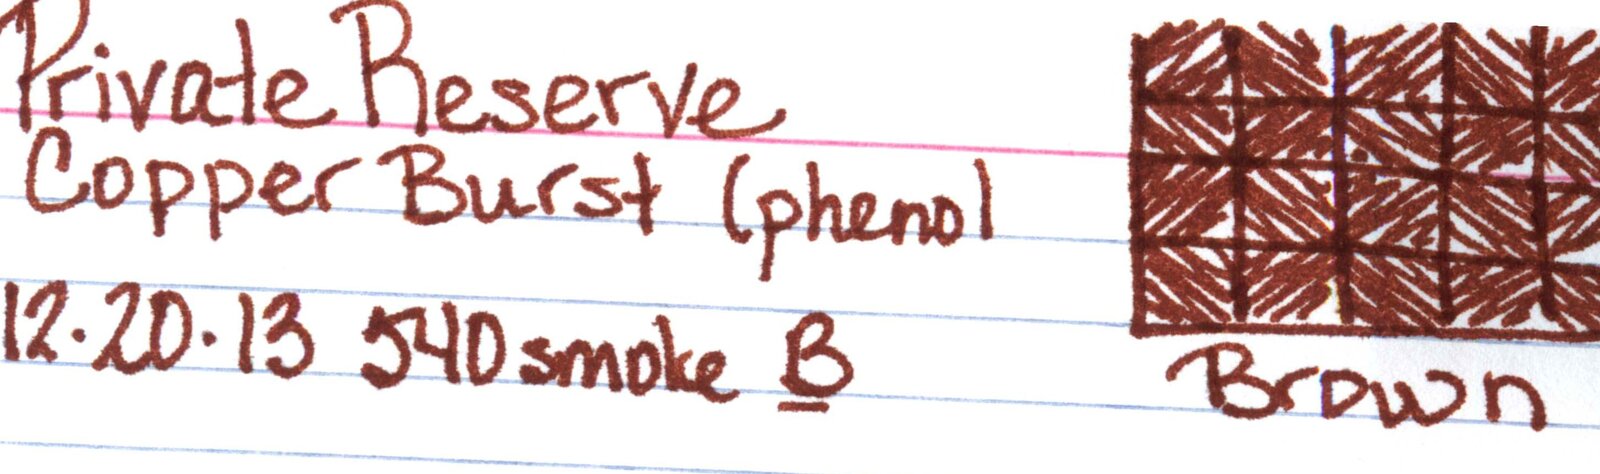 Private Reserve
Copper Burst (phenol
12.20.13 540 smoke B
Brown